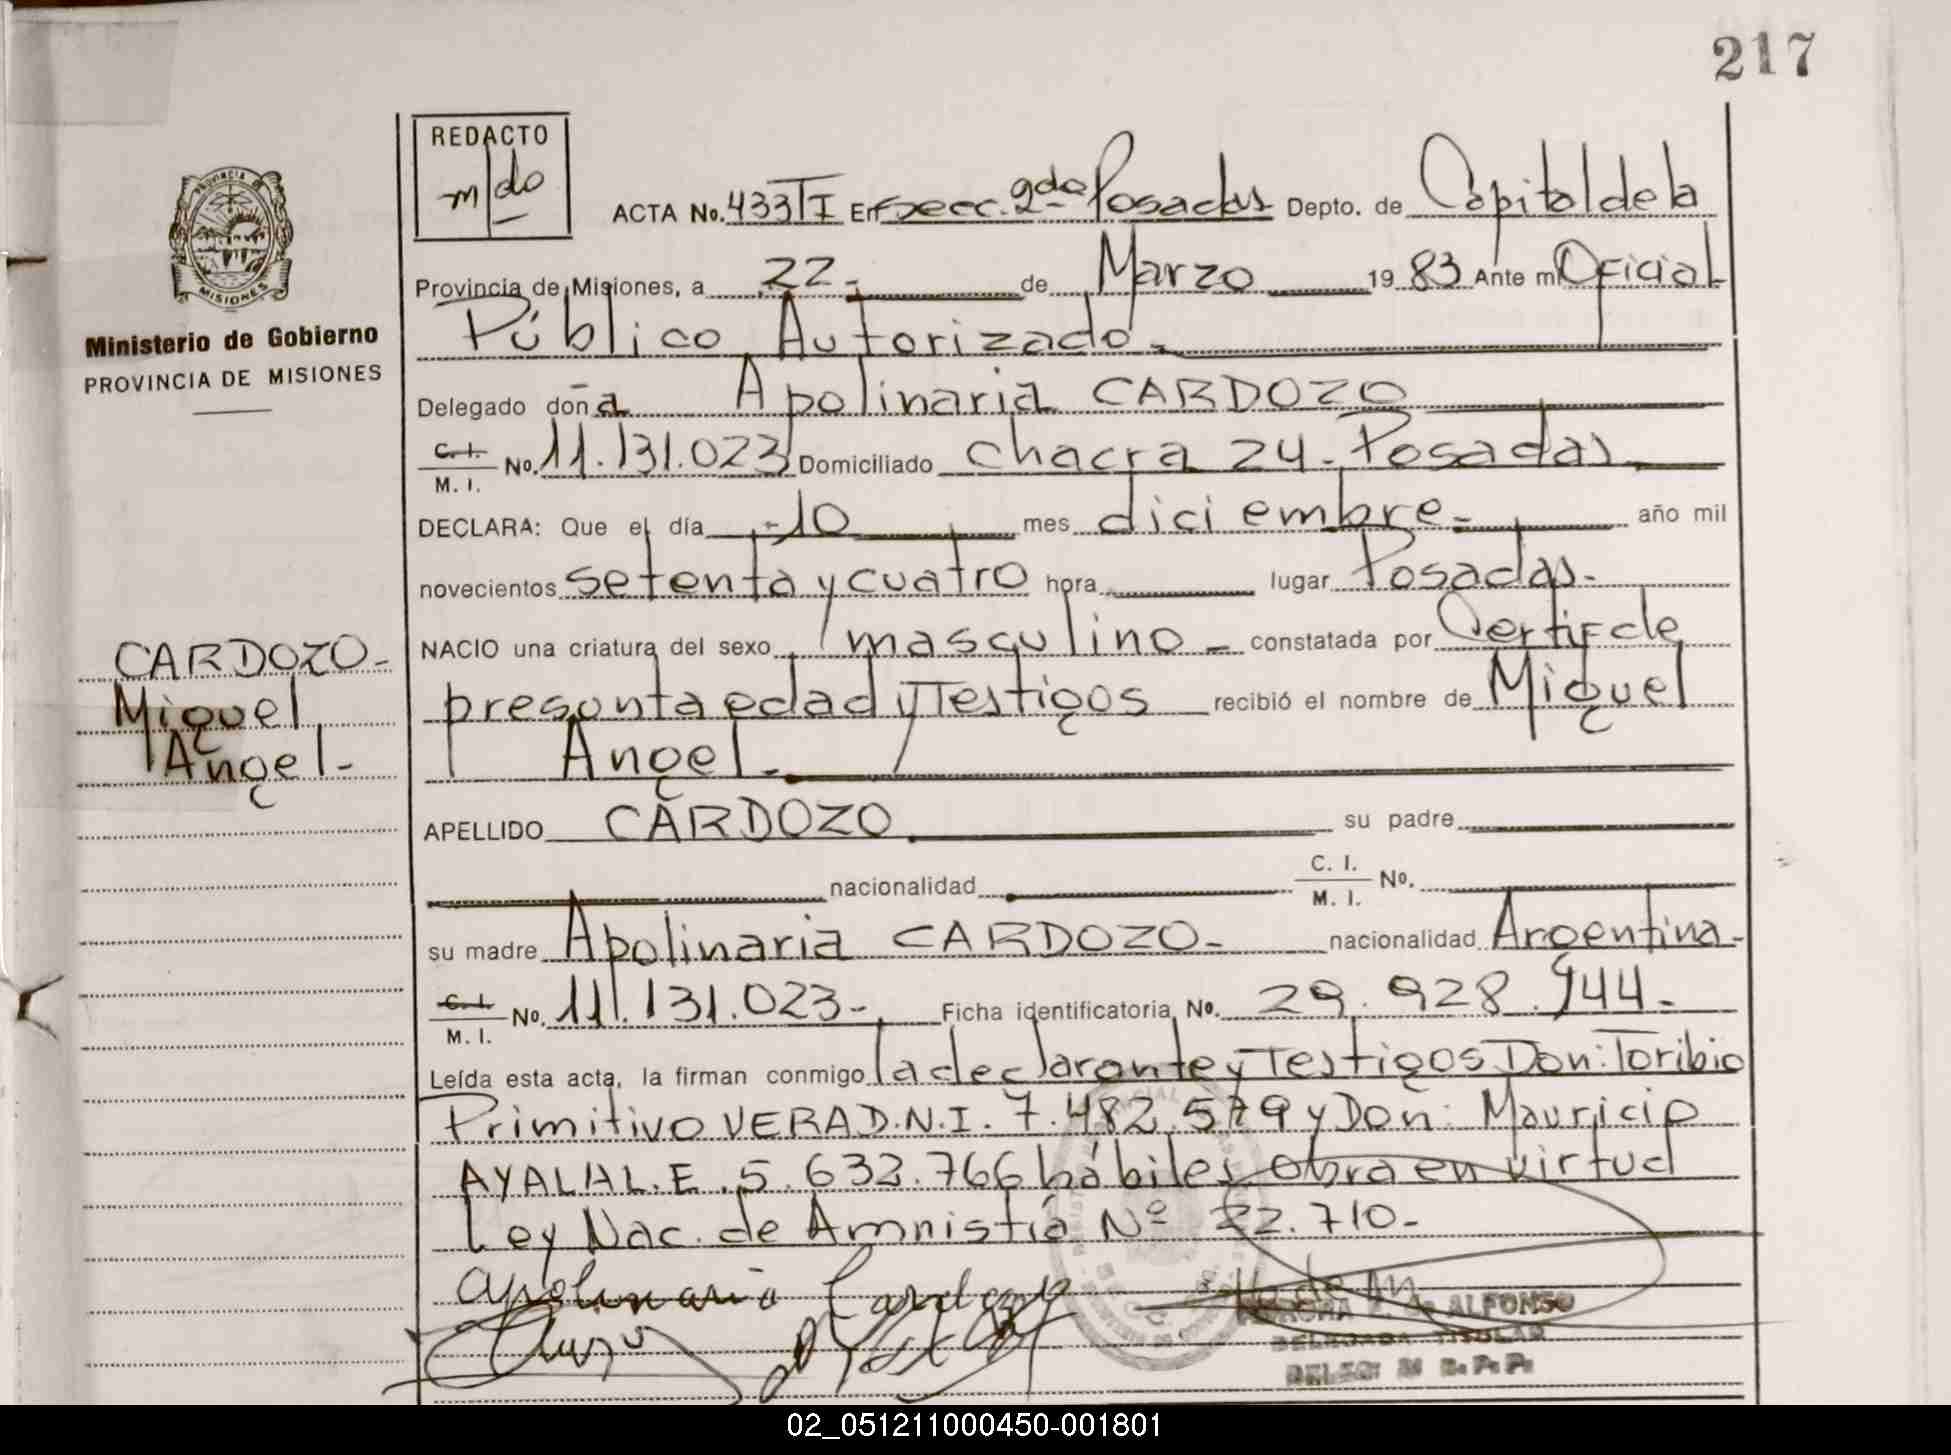 217
REDACTO
m/do
PROVINCIA DE
MISIONES
Ministerio de Gobierno
PROVINCIA DE MISIONES
ACTA No. 433 TI En Secc. 2da Posadas Depto. de Capital de la
Provincia de Misiones, a 22- de Marzo 1983 Ante mi Oficial
Público Autorizado-
Delegado doña Apolinaria CARDOZO
C. I. / M. I. No. 11.131.023 Domiciliado chacra 24- Posadas
DECLARA: Que el día -10 mes diciembre- año mil
novecientos setenta y cuatro hora lugar Posadas-
NACIO una criatura del sexo masculino- constatada por Certif de
presunta edad y Testigos recibió el nombre de Miguel
Angel-
CARDOZO-
Miguel
Angel-
APELLIDO CARDOZO su padre
nacionalidad C. I. / M. I. No.
su madre Apolinaria CARDOZO- nacionalidad Argentina-
C. I. / M. I. No. 11.131.023- Ficha identificatoria No. 29.928.944-
Leída esta acta, la firman conmigo la declarante y Testigos Don: Toribio
Primitivo VERA D.N.I. 7.482.579 y Don: Mauricio
AYALA L.E. 5.632.766 hábiles obra en virtud
Ley Nac. de Amnistía Nº 22.710-
Apolinaria Cardozo
DE ALFONSO
DELEGADA TITULAR
02_051211000450-001801